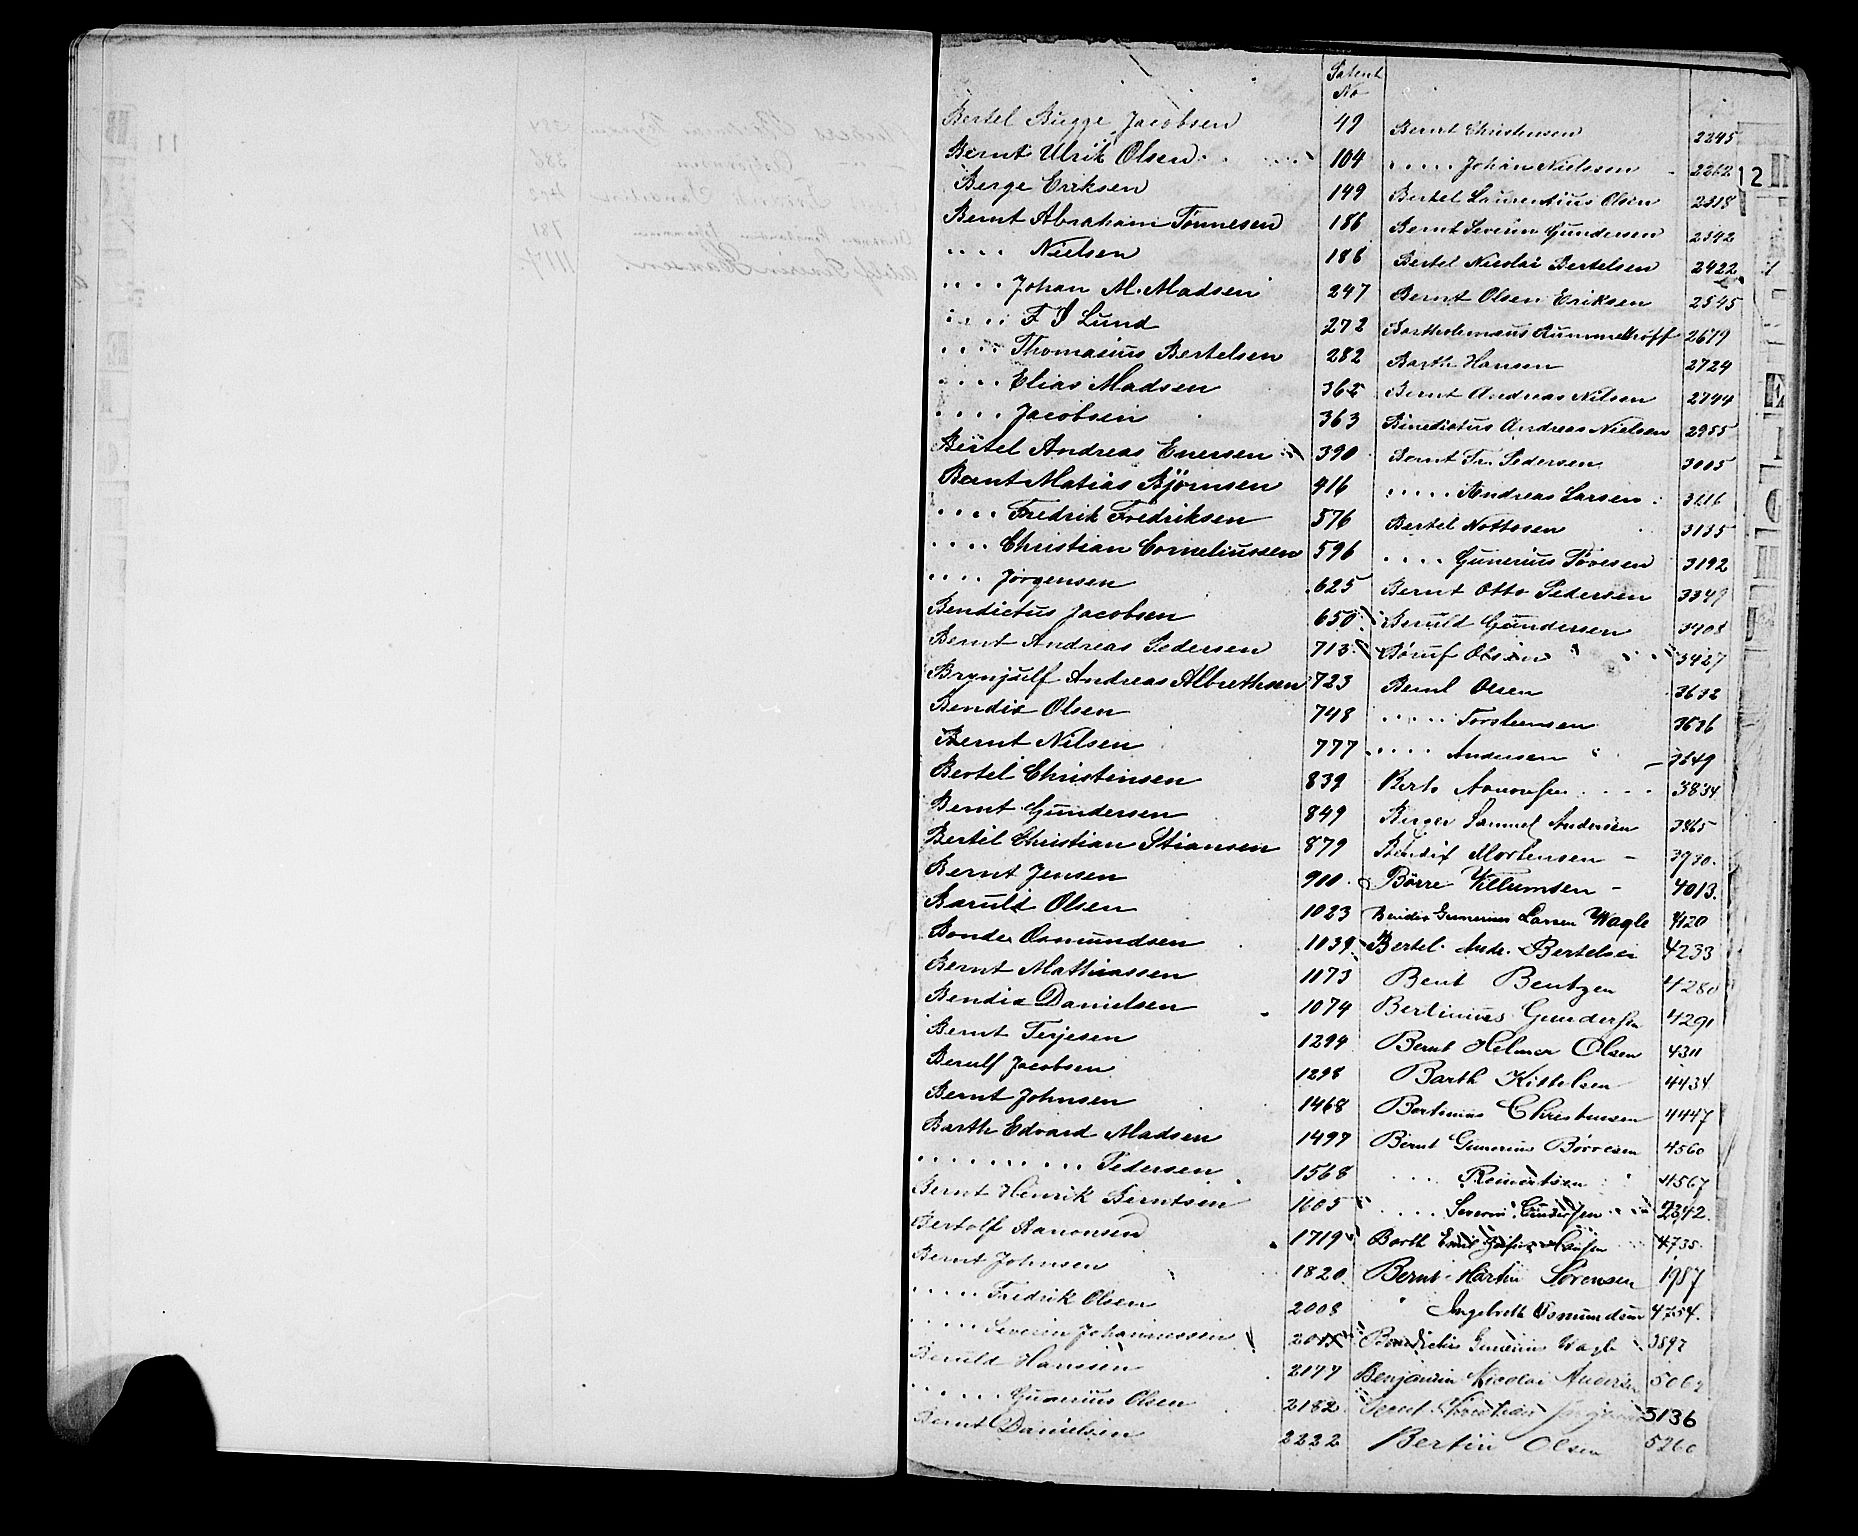 Patent
No
12
Bertel Bugge Jacobsen 49
Bernt Ulrik Olsen 104
Berge Eriksen 149
Bernt Abraham Tönnesen 186
.... Nielsen 186
.... Johan M. Madsen 247
.... F I Lund 272
.... Thomasius Bertelsen 282
.... Elias Madsen 362
.... Jacobsen 363
Bertel Andreas Enersen 390
Bernt Matias Bjørnsen 416
.... Fredrik Fredriksen 576
.... Christian Corneliussen 596
.... Jørgensen 625
Bendictus Jacobsen 650
Bernt Andreas Pedersen 713
Brynjulf Andreas Albrethsen 723
Bendix Olsen 748
Bernt Nilsen 777
Bertel Christensen 839
Bernt Gundersen 849
Bertil Christian Stiansen 879
Bernt Jensen 911
Baruld Olsen 1023
Bonde Osmundsen 1039
Bernt Mathiassen 1073
Bendix Danielsen 1074
Bernt Terjesen 1294
Berulf Jacobsen 1298
Bernt Johnsen 1468
Barth Edvard Madsen 1497
.......... Pedersen 1568
Bernt Henrik Berntsen 1605
Bertolf Aanonsen 1719
Bernt Johnsen 1820
..... Fredrik Olsen 2008
..... Severin Johannessen 2015
Beruld Hanssen 2177
...... Gunerius Olsen 2182
Bernt Danielsen 2222
Bernt Christensen 2245
..... Johan Nielssen 2262
Bertel Laurentius Olsen 2318
Bernt Severin Gundersen 2342
Bertel Nicolai Bertelsen 2422
Bernt Olsen Eriksen 2545
Bartholemæus Rummelhoff 2679
Barth Hansen 2724
Bernt Andreas Nilsen 2744
Benedictus Andreas Nielsen 2955
Bernt Fr. Pedersen 3005
..... Andreas Larsen 3116
Bertel Nottosen 3135
.... Gunerius Tovesen 3192
Bernt Otto Pedersen 3349
Beruld Gundersen 3408
Børuf Olsen 3427
Bernt Olsen 3612
..... Torstensen 3626
..... Andersen 3649
Berto Aanonsen 3834
Birger Samuel Andersen 3865
Bendix Mortensen 3930.
Börre Villumsen 4013.
Bendix Gunerius Larsen Wagle 4120
Bertel Andr. Bertelsen 4233
Bent Bentzen 4280
Bertinius Gundersen 4291
Bernt Helmer Olsen 4311
Barth Kittelsen 4434
Bertinius Christensen 4447
Bernt Gunerius Børresen 4560
.... Reinertsen 4567
.... Severin Gundersen 2342.
Barth Emil Hansen 4735.
Bernt Martin Sörensen 1987
" Ingebreth Osmundsen 4754.
Benedictus Gunerius Wagle 3897
Benjamin Nicolai Andersen 5062
Bernt 5136
Bertin Olsen 5260